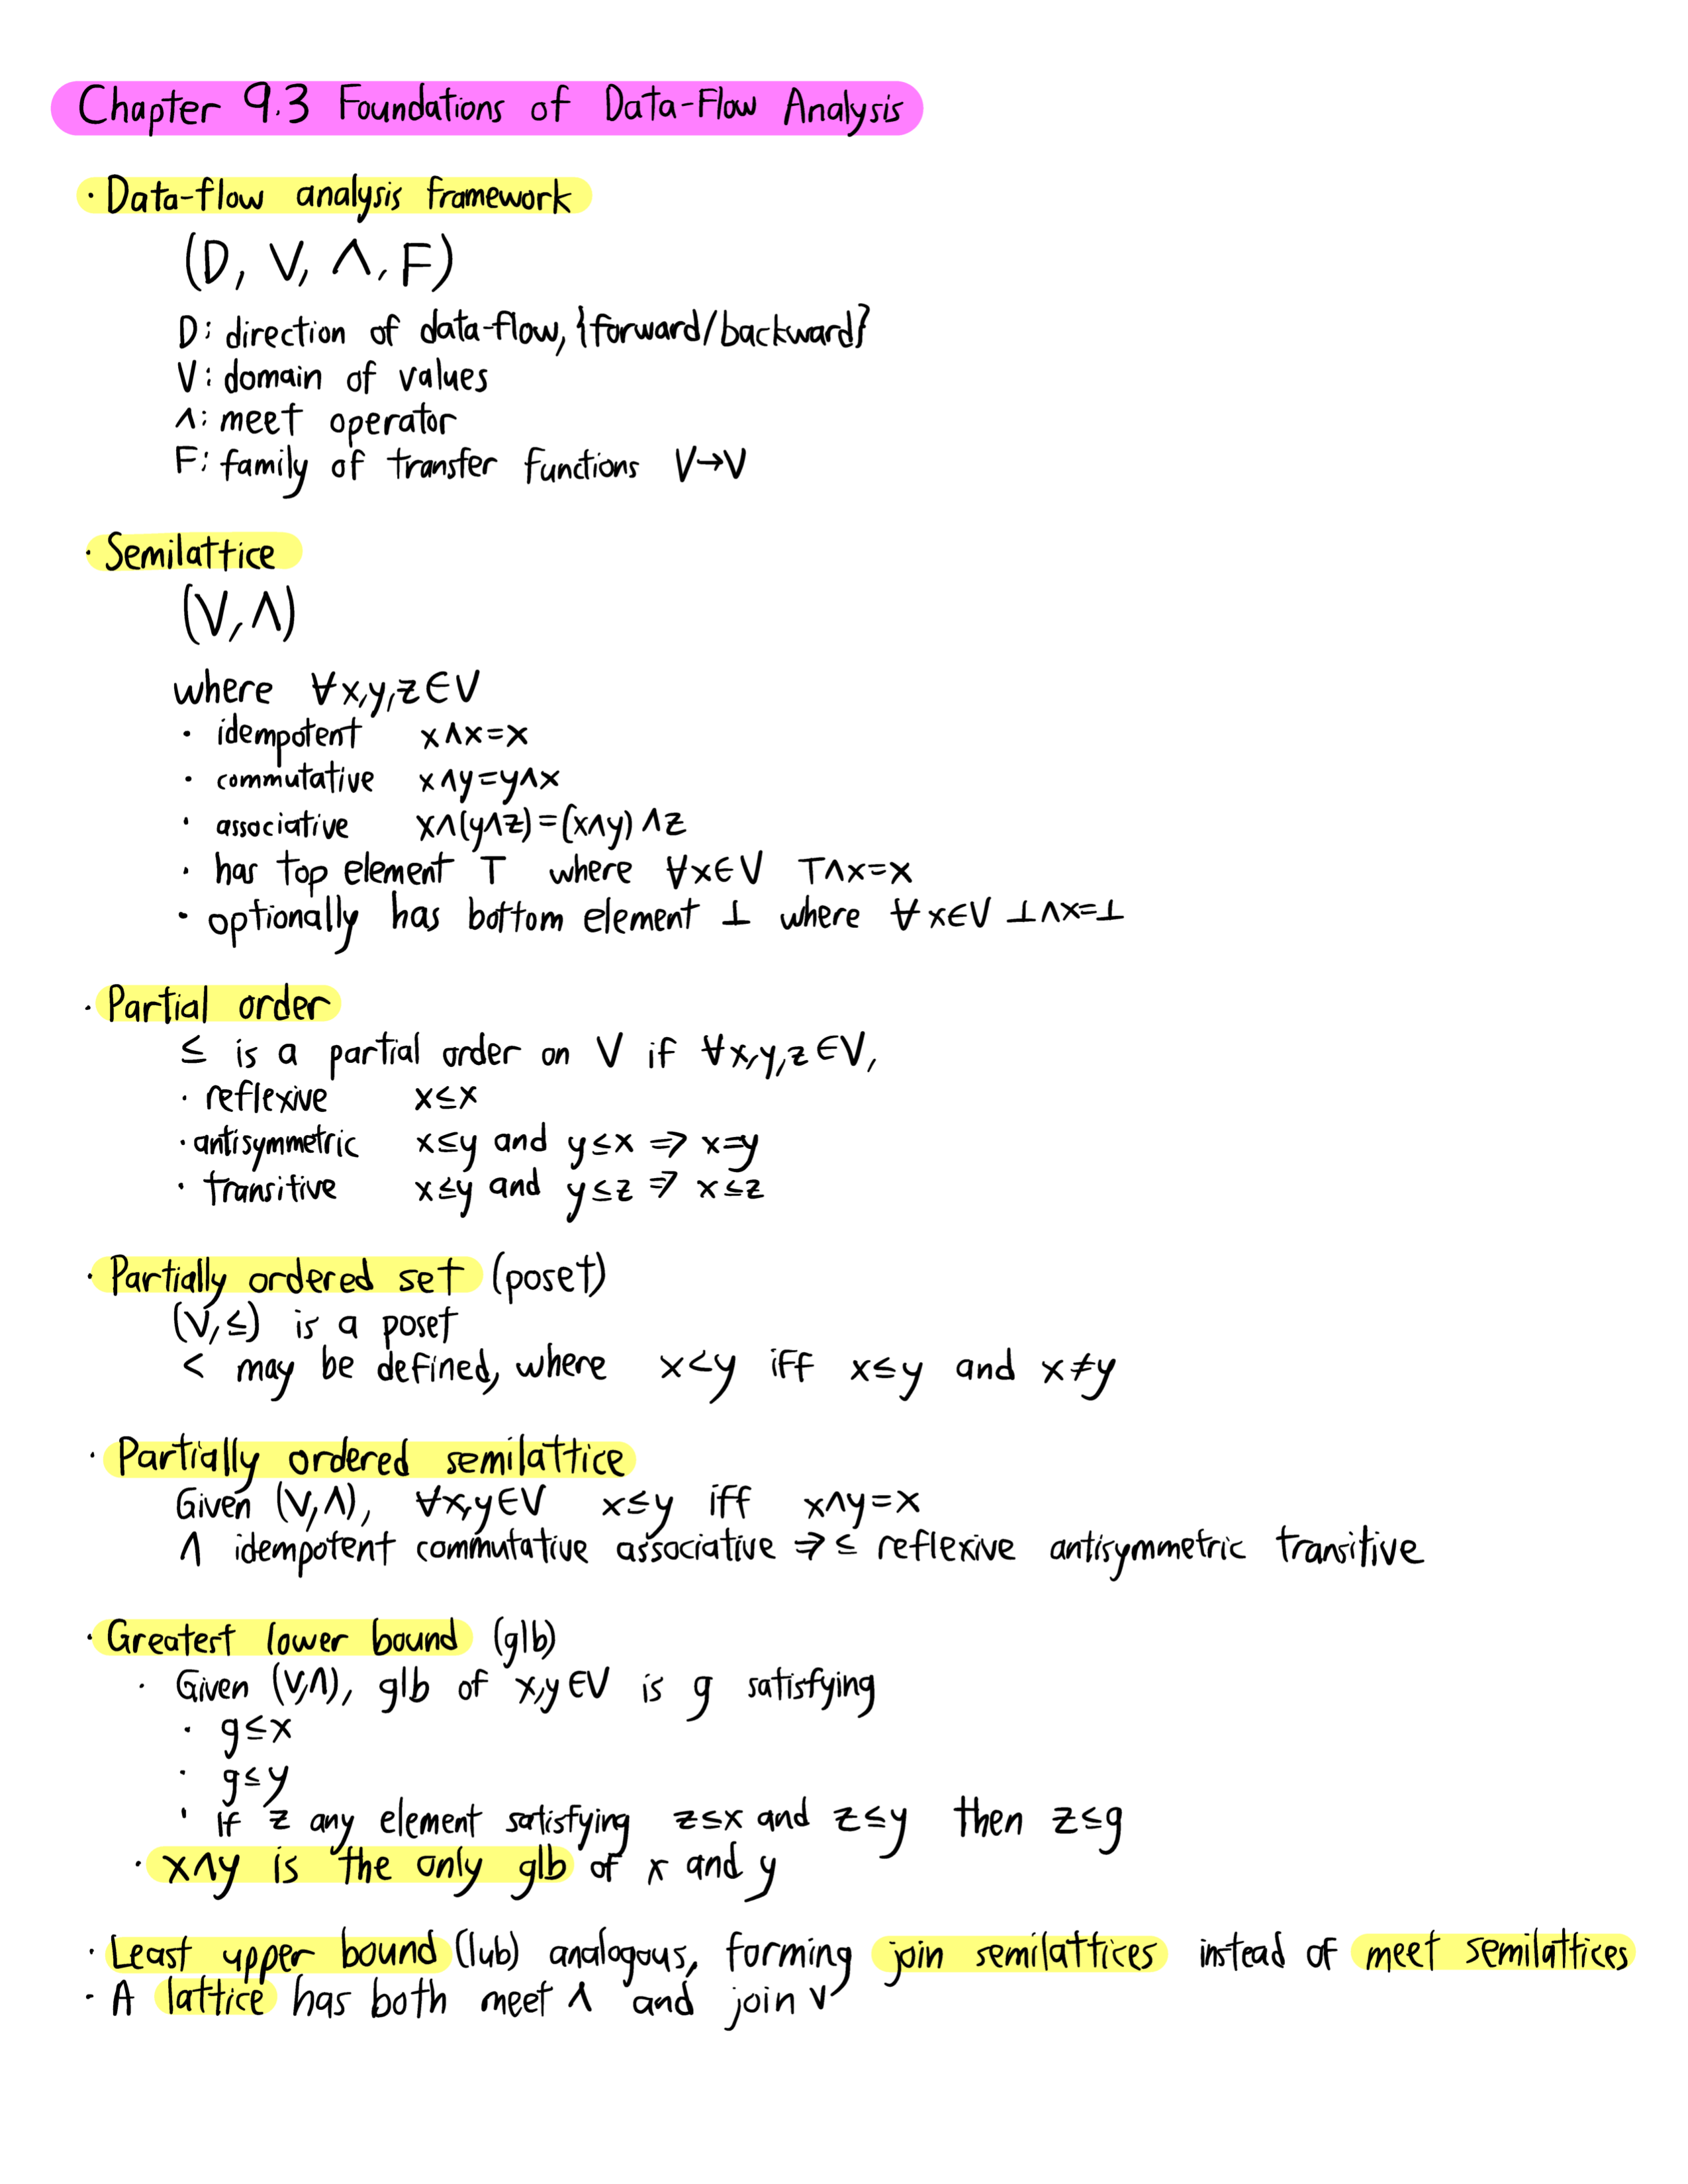 Chapter 9.3 Foundations of Data-Flow Analysis
· Data-flow analysis framework
(D, V, ∧, F)
D: direction of data-flow, {forward/backward}
V: domain of values
∧: meet operator
F: family of transfer functions V→V
· Semilattice
(V, ∧)
where ∀x,y,z∈V
· idempotent x∧x=x
· commutative x∧y=y∧x
· associative x∧(y∧z)=(x∧y)∧z
· has top element ⊤ where ∀x∈V ⊤∧x=x
· optionally has bottom element ⊥ where ∀x∈V ⊥∧x=⊥
· Partial order
≤ is a partial order on V if ∀x,y,z∈V,
· reflexive x≤x
· antisymmetric x≤y and y≤x ⇒ x=y
· transitive x≤y and y≤z ⇒ x≤z
· Partially ordered set (poset)
(V,≤) is a poset
< may be defined, where x<y iff x≤y and x≠y
· Partially ordered semilattice
Given (V,∧), ∀x,y∈V x≤y iff x∧y=x
∧ idempotent commutative associative ⇒ ≤ reflexive antisymmetric transitive
· Greatest lower bound (glb)
· Given (V,∧), glb of x,y∈V is g satisfying
· g≤x
· g≤y
· If z any element satisfying z≤x and z≤y then z≤g
· x∧y is the only glb of x and y
· Least upper bound (lub) analogous, forming join semilattices instead of meet semilattices
· A lattice has both meet ∧ and join ∨